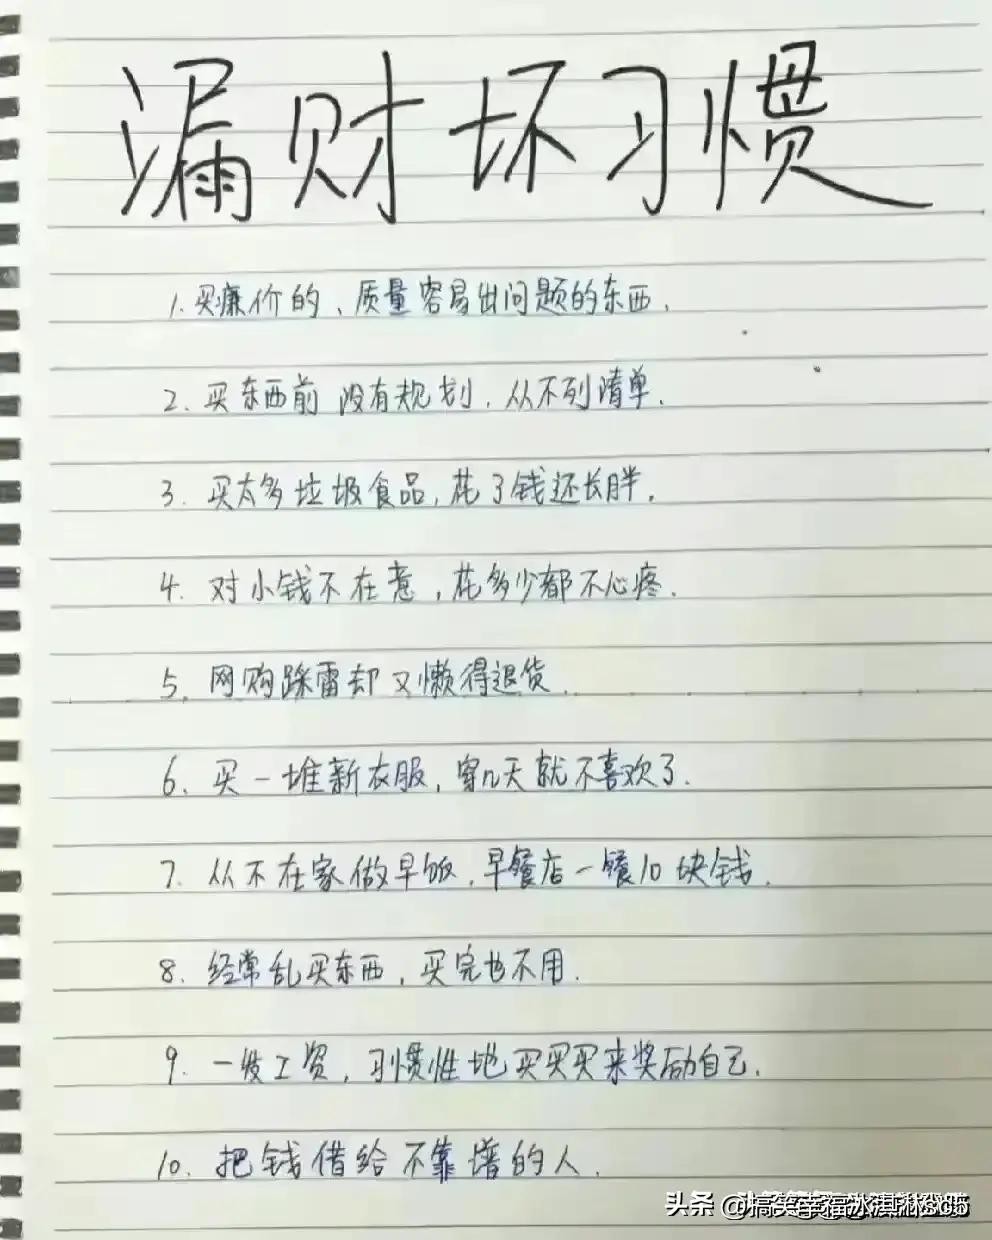 漏财坏习惯
1. 买廉价的、质量容易出问题的东西.
2. 买东西前没有规划, 从不列清单.
3. 买太多垃圾食品, 花了钱还长胖.
4. 对小钱不在意, 花多少都不心疼.
5. 网购踩雷却又懒得退货.
6. 买一堆新衣服, 穿几天就不喜欢了.
7. 从不在家做早饭, 早餐店一餐10块钱.
8. 经常乱买东西, 买完也不用.
9. 一发工资, 习惯性地买买买来奖励自己.
10. 把钱借给不靠谱的人.
头条